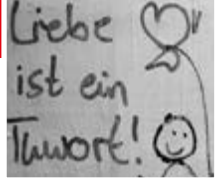 Liebe
ist ein
Tuwort!